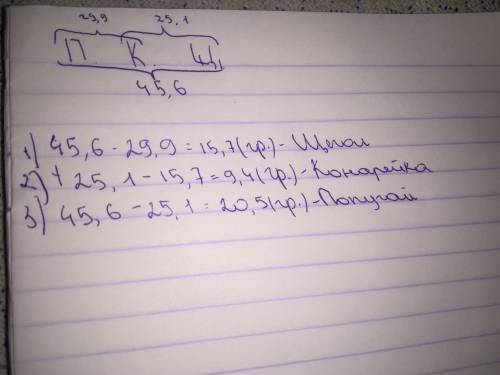 29,9 25,1
П. К. Щ
45,6
1) 45,6 - 29,9 = 15,7(гр.)-Щегол
2) + 25,1 - 15,7 = 9,4(гр.)-Конарейка
3) 45,6 - 25,1 = 20,5(гр.)-Попугай